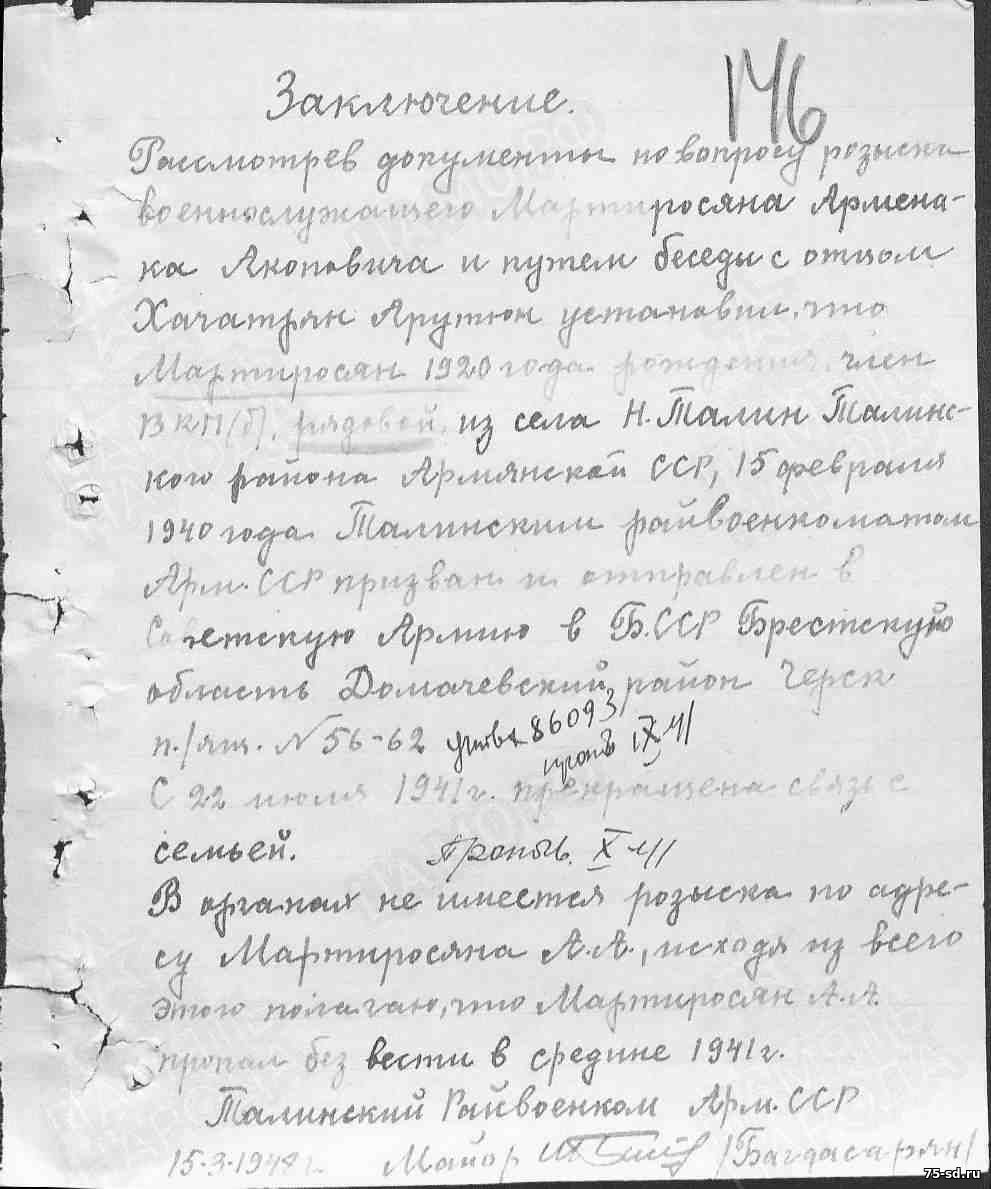 146
Заключение.
Рассмотрев документы по вопросу розыска
военнослужащего Мартиросяна Армена-
ка Акоповича и путем беседы с отцом
Хачатрян Арутюн установил, что
Мартиросян 1920 года рождения, член
ВКП/б/, рядовой, из села Н.Талин Талинс-
кого района Армянской ССР, 15 февраля
1940 года Талинским райвоенкоматом
Арм.ССР призван и отправлен в
Советскую Армию в Б.ССР Брестскую
область Домачевский район Черск
п./ящ. №56-62 86093
IX 41
С 22 июля 1941г. прекращена связь с
семьей. Пропал. X-41
В органах не имеется розыска по адре-
су Мартиросяна А.А., исходя из всего
этого полагаю, что Мартиросян А.А.
пропал без вести в средине 1941г.
Талинский Райвоенком Арм.ССР
15-3-194 г. Майор /Багдасарян/
75-sd.ru